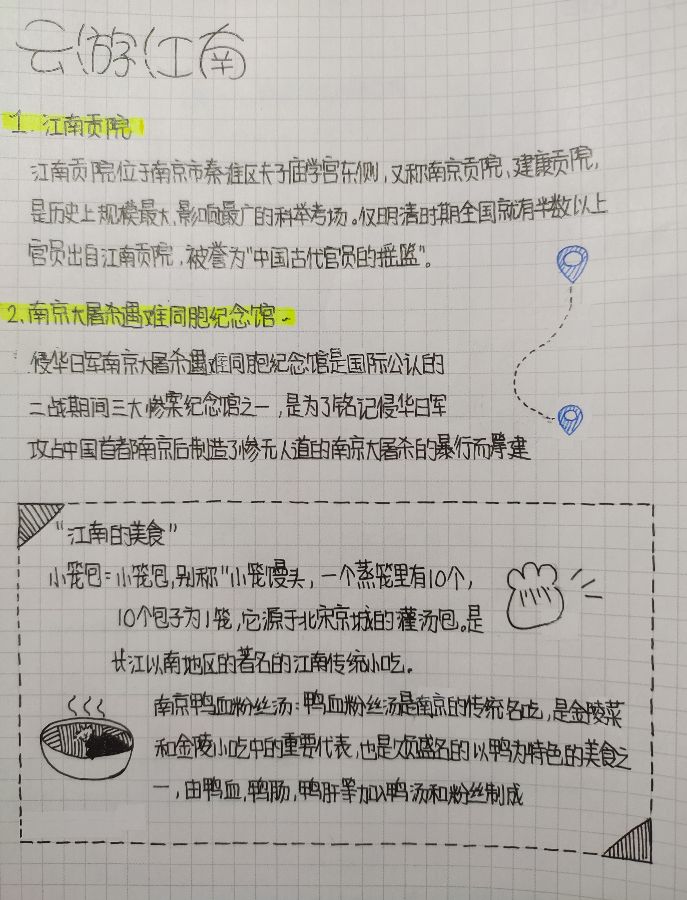 云游江南
1. 江南贡院
江南贡院位于南京市秦淮区夫子庙学宫东侧，又称南京贡院，建康贡院，
是历史上规模最大，影响最广的科举考场。仅明清时期全国就有半数以上
官员出自江南贡院，被誉为"中国古代官员的摇篮"。
2.南京大屠杀遇难同胞纪念馆
侵华日军南京大屠杀遇难同胞纪念馆是国际公认的
二战期间三大惨案纪念馆之一，是为了铭记侵华日军
攻占中国首都南京后制造了惨无人道的南京大屠杀的暴行而筹建
"江南的美食"
小笼包：小笼包，别称"小笼馒头，一个蒸笼里有10个，
10个包子为1笼，它源于北宋京城的灌汤包。是
长江以南地区的著名的江南传统小吃。
南京鸭血粉丝汤：鸭血粉丝汤是南京的传统名吃，是金陵菜
和金陵小吃中的重要代表，也是久负盛名的以鸭为特色的美食之
一，由鸭血，鸭肠，鸭肝等加入鸭汤和粉丝制成